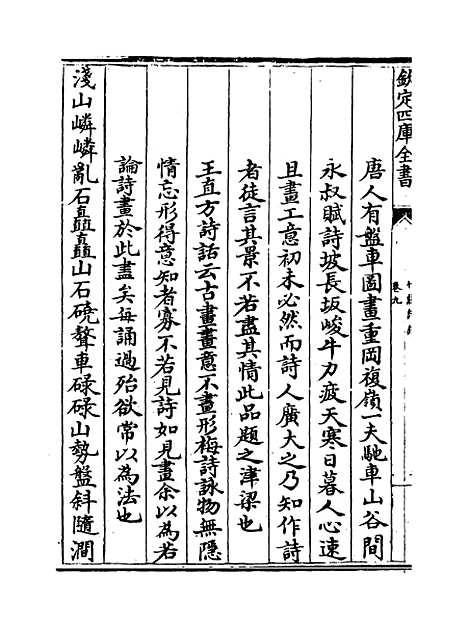 欽定四庫全書
卷九
唐人有盤車圖畫重岡複嶺一夫馳車山谷間
永叔賦詩坡長坂峻牛力疲天寒日暮人心速
且畫工意初未必然而詩人廣大之乃知作詩
者徒言其景不若盡其情此品題之津梁也
王直方詩話云古畫畫意不畫形梅詩詠物無隱
情忘形得意知者寡不若見詩如見畫余以為若
論詩畫於此盡矣每誦過殆欲常以為法也
淺山嶙嶙亂石矗矗山石磽聱車碌碌山勢盤斜隨澗